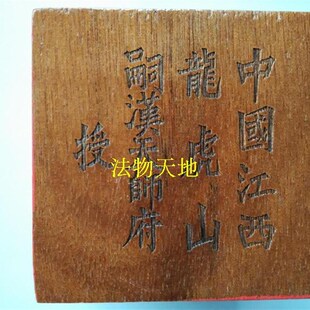 中國江西
龍虎山
嗣漢天師府
授
法物天地